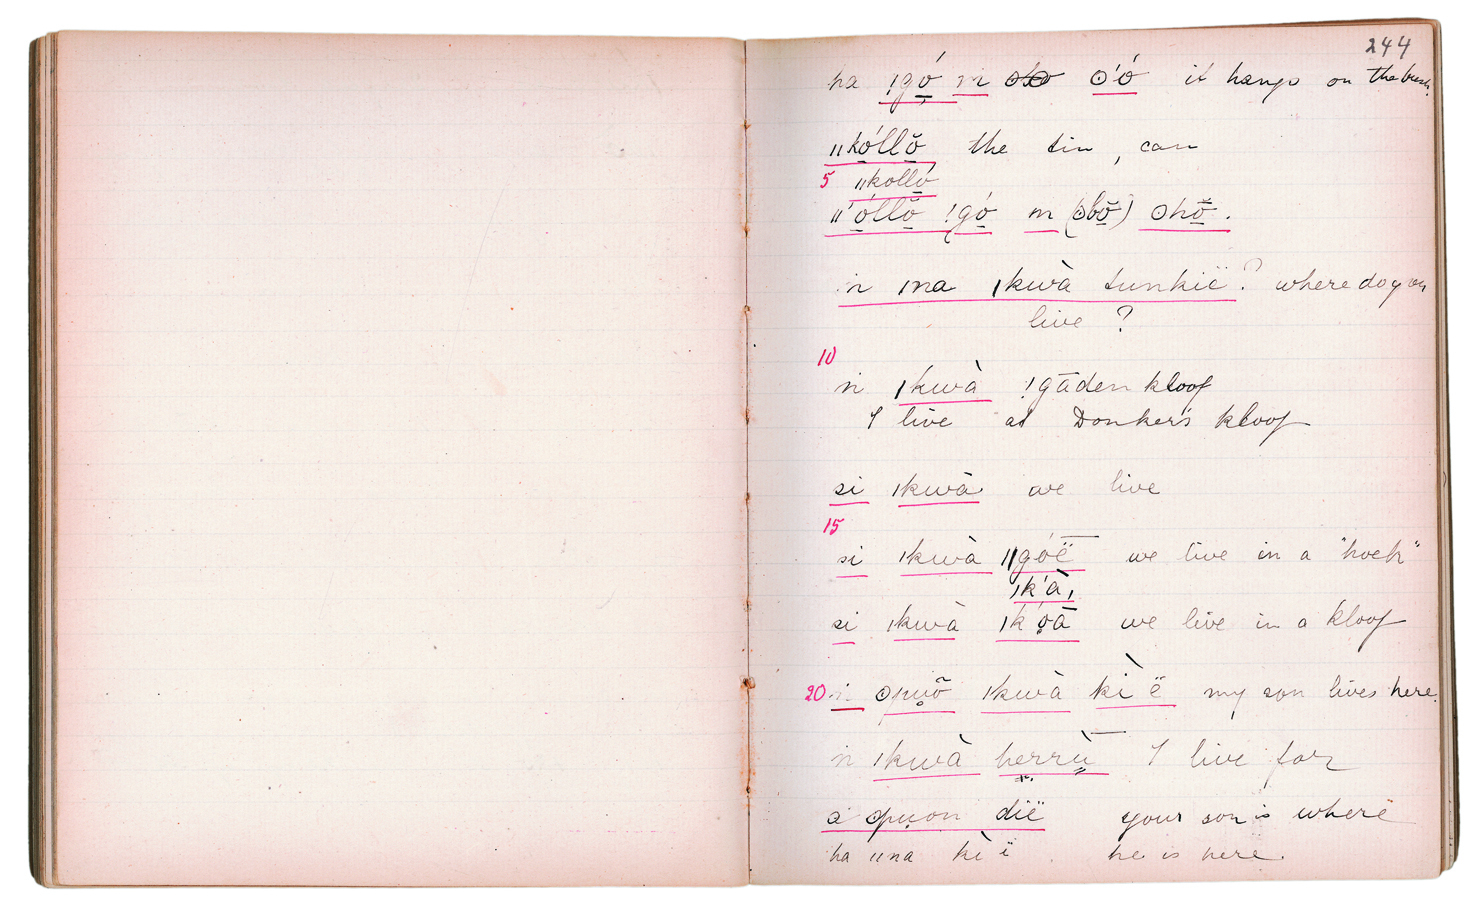 244
ha !gó m ʘ'ó it hangs on the bush.
ǁkóllŏ the tin, can
5 ǁkolló
ǁ'óllŏ !gó m (ʘbō̆) ʘhō̆.
n ǀna ǀkwà tunkië? where do you
live?
10
n ǀkwà !gāden kloof
I live at Donker's kloof
si ǀkwà we live
15
si ǀkwà ǁgóë we live in a "hoek"
ǀk'à,
si ǀkwà ǀk'o̤ā we live in a kloof
20 n ʘpu̥ō̃ ǀkwà kì ë my son lives here.
n ǀkwà herrù I live far
a ʘpu̥on dië your son is where
ha ǁna kì ë he is here